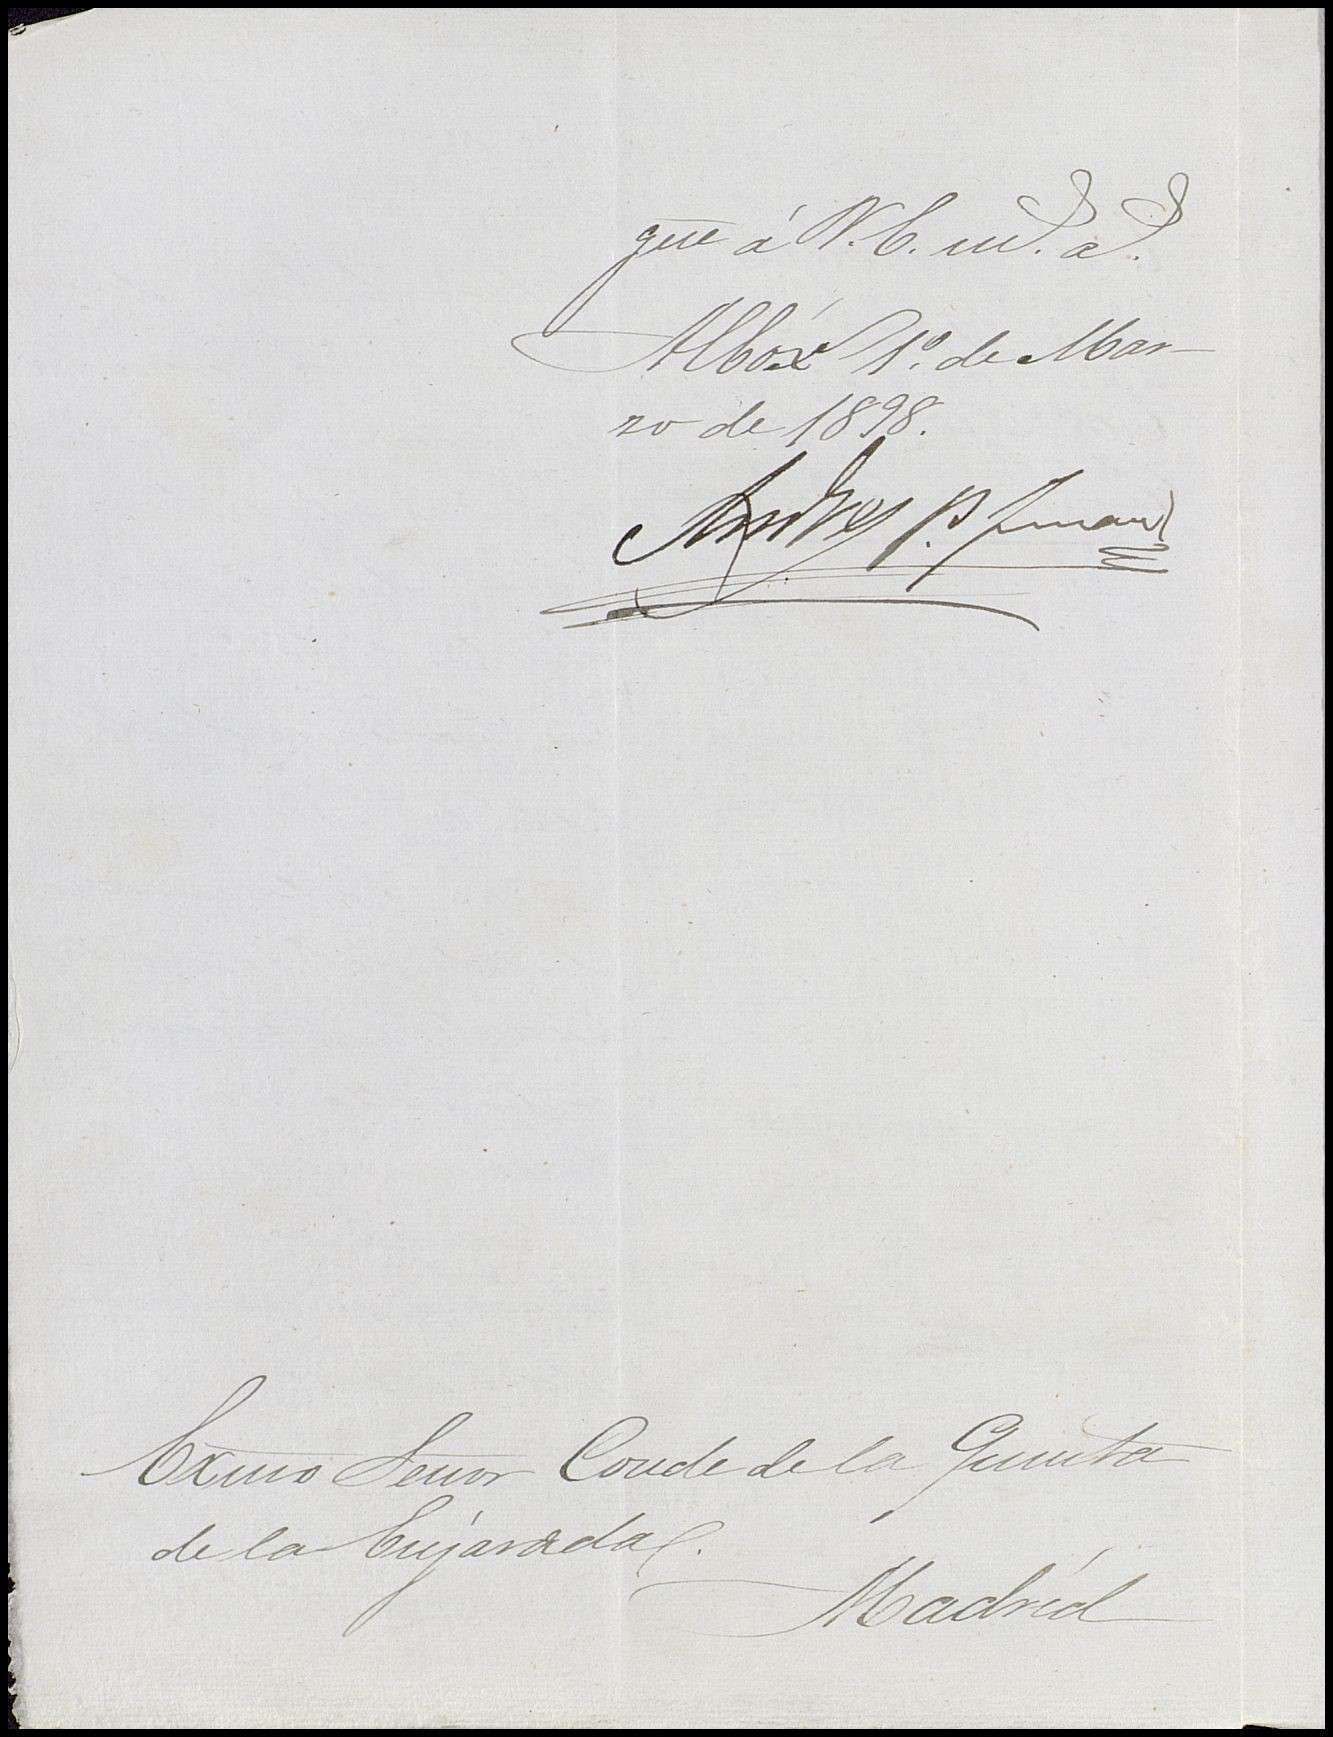 gue á V. E. m.s. a.s.
Albóx 1º. de Mar-
zo de 1898.
Andres P.
Exmo Señor Conde de la Quinta
de la Enjarada.
Madrid